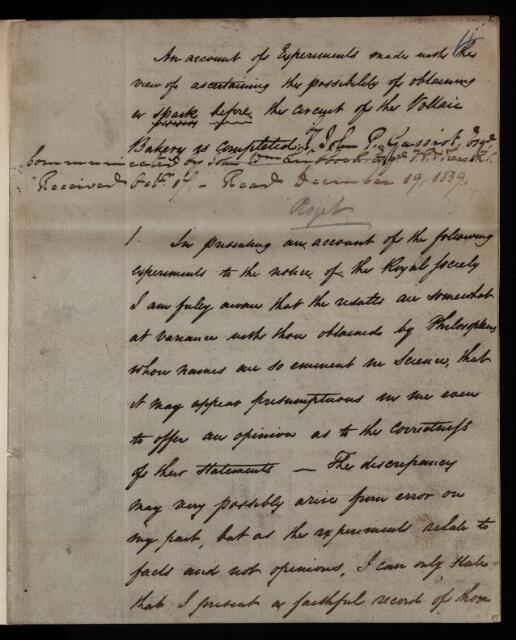 An account of Experiments made with the
view of ascertaining the possibility of obtaining
a spark before the circuit of the Voltaic
Battery is completed. By John P. Gassiot, Esqre
Communicated by John Wm Lubbock, Esqre V.P. & Treas R.S.
Received Octr 17 – Read December 19, 1839.
Roget
1. In presenting an account of the following
experiments to the notice of the Royal Society
I am fully aware that the results are somewhat
at variance with those obtained by Philosophers
whose names are so eminent in Science, that
it may appear presumptuous in me even
to offer an opinion as to the correctness
of their statements — The discrepancy
may very possibly arise from error on
my part, but as the experiments relate to
facts and not opinions, I can only state
that I present a faithful record of those